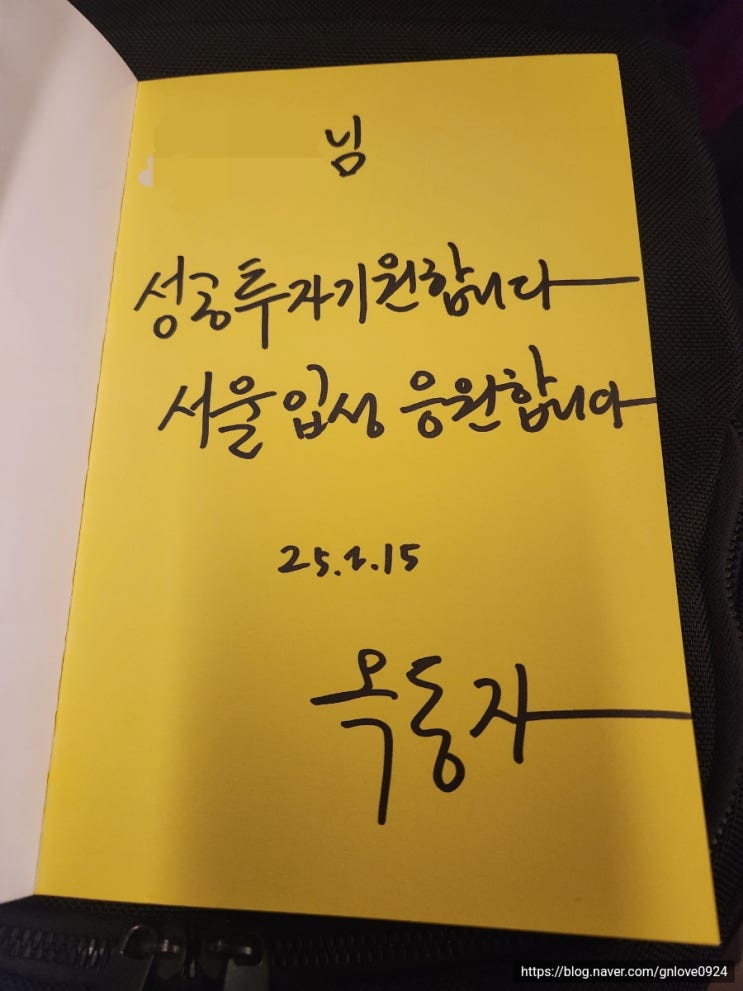 님
성공투자기원합니다
서울입성 응원합니다
25.2.15
옥동자
https://blog.naver.com/gnlove0924